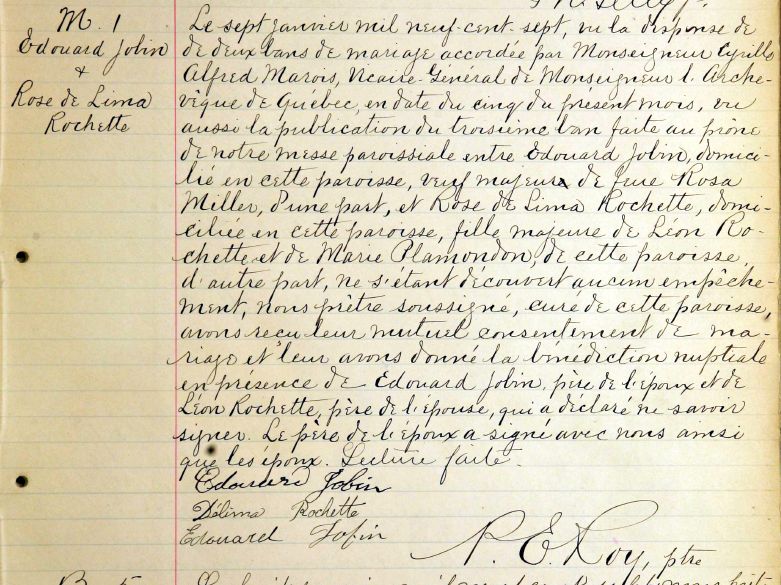 M. 1
Edouard Jobin
&
Rose de Lima
Rochette
Le sept janvier mil neuf-cent-sept, vu la dispense de
de deux bans de mariage accordée par Monseigneur Cyrille
Alfred Marois, Vicaire-Général de Monseigneur l'Arche-
vêque de Québec, en date du cinq du présent mois, vu
aussi la publication du troisième ban faite au prône
de notre messe paroissiale entre Edouard Jobin, domici-
lié en cette paroisse, veuf majeur de feue Rosa
Miller, d'une part, et Rose de Lima Rochette, domi-
ciliée en cette paroisse, fille majeure de Léon Ro-
chette et de Marie Plamondon, de cette paroisse,
d'autre part, ne s'étant découvert aucun empêche-
ment, nous prêtre soussigné, curé de cette paroisse,
avons reçu leur mutuel consentement de ma-
riage et leur avons donné la bénédiction nuptiale
en présence de Edouard Jobin, père de l'époux et de
Léon Rochette, père de l'épouse, qui a déclaré ne savoir
signer. Le père de l'époux a signé avec nous ainsi
que les époux. Lecture faite.
Edouard Jobin
Délima Rochette
Edouard Jobin
P. E. Roy, ptre